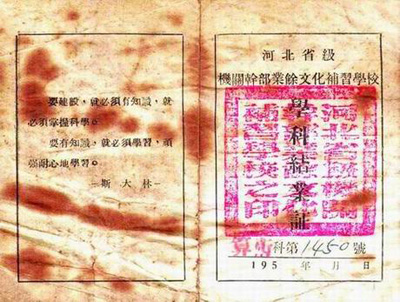 要建設，就必須有知識，就
必須掌握科學。
要有知識，就必須學習，頑
强耐心地學習。
—斯大林—
河北省級
機關幹部業餘文化補習學校
學科結業証
算術科第1450號
195 年 月 日